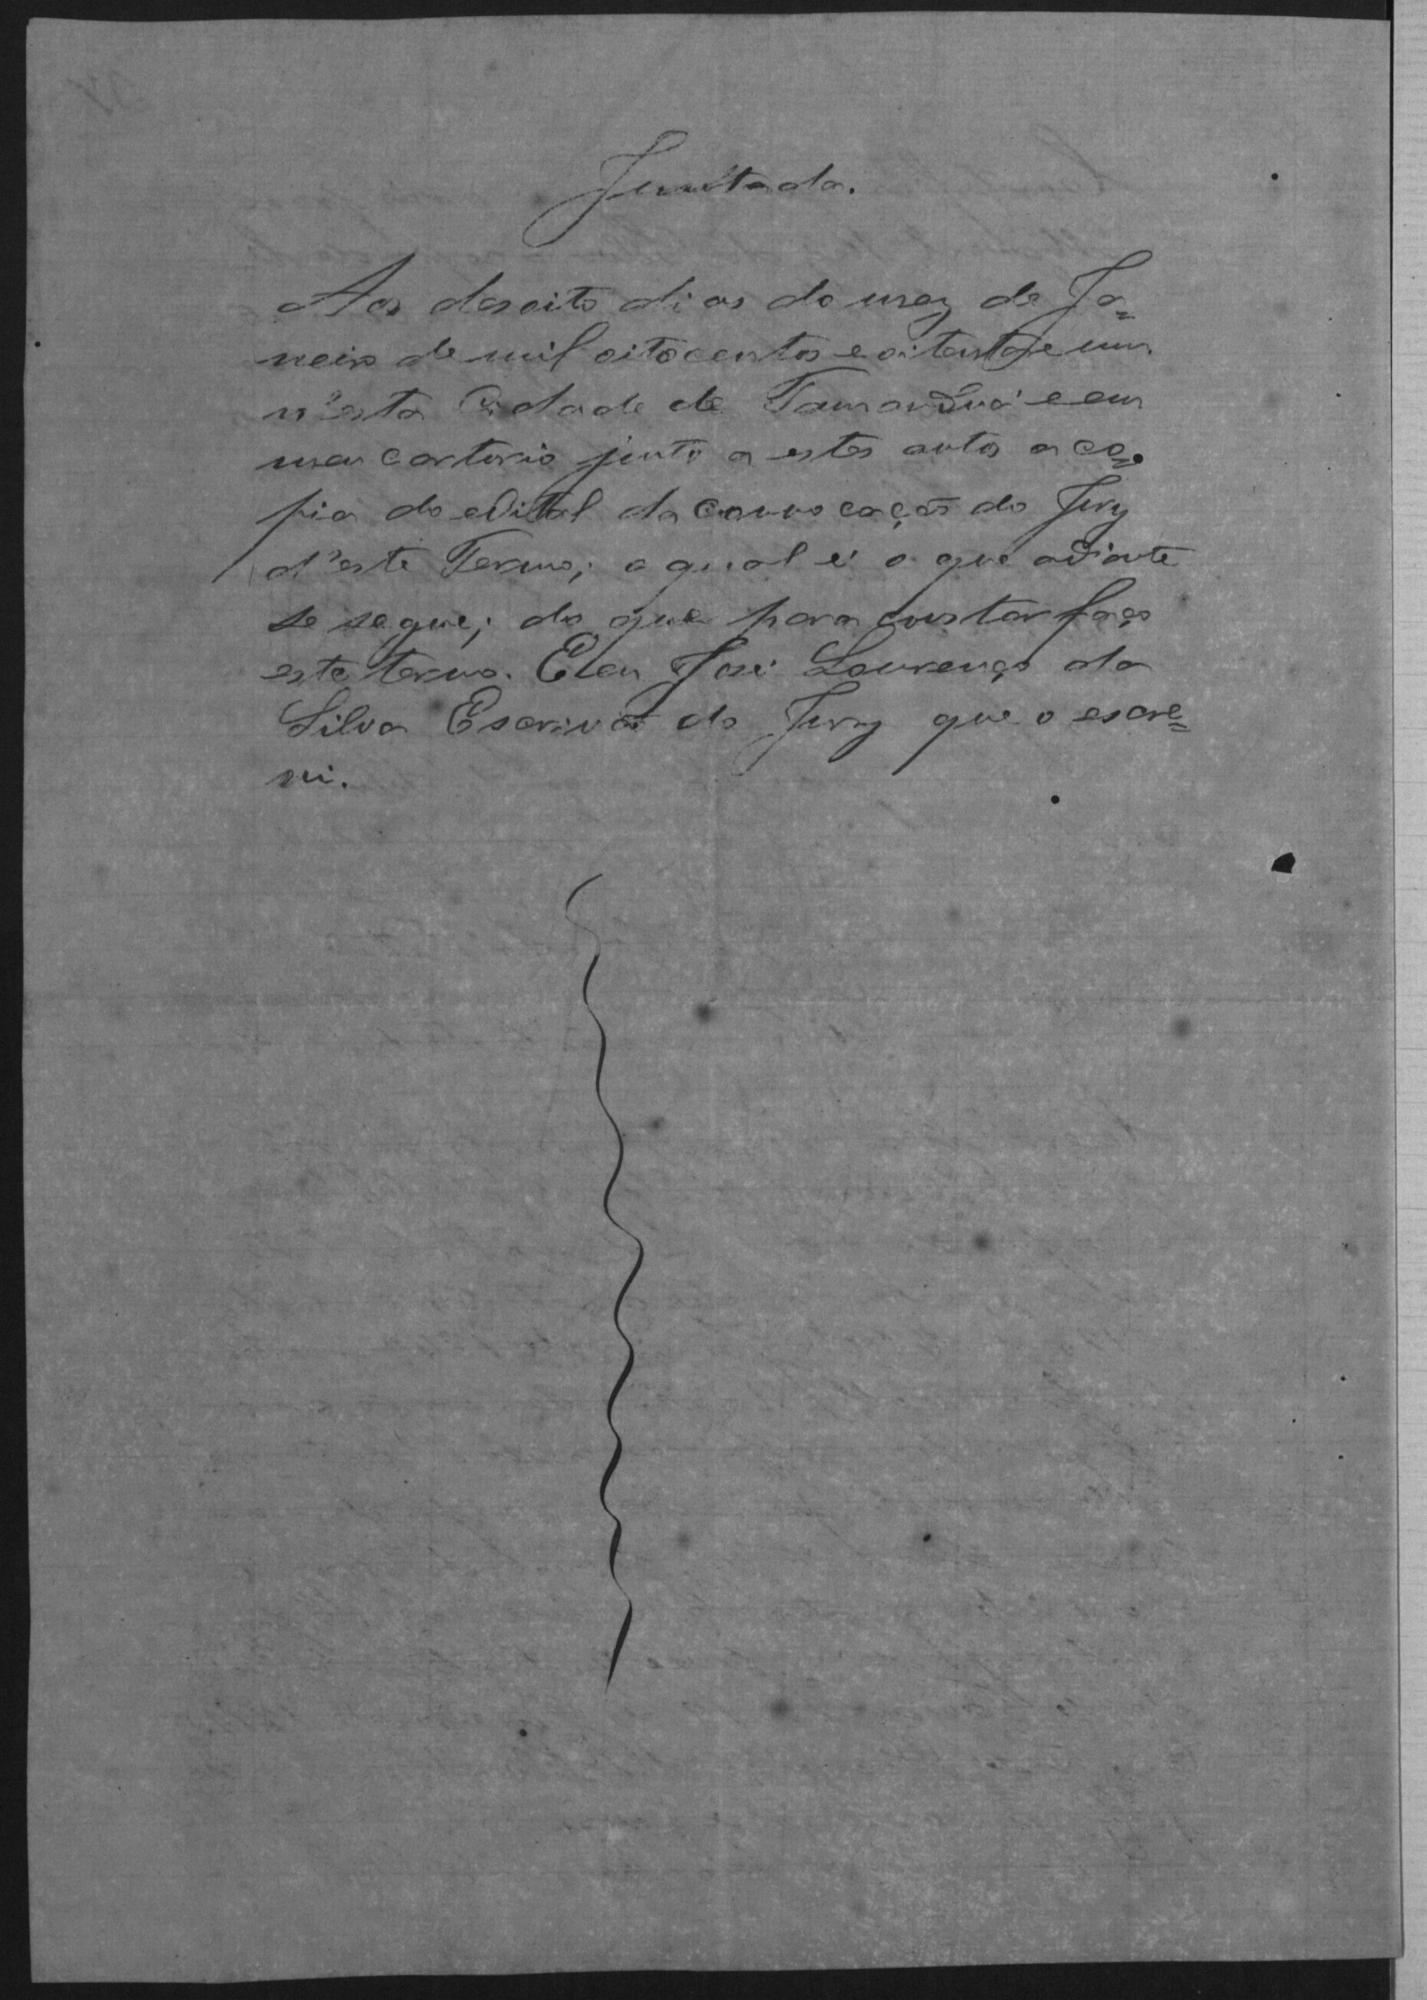 Juntada.
Aos desoito dias do mez de Ja=
neiro de mil oitocentos e oitenta e um
n'esta Cidade de Tamanduá e em
meu cartorio junto a estes autos a co=
pia do edital da convocação do Jury
d'este Termo; a qual é a que adiante
se segue; do que para constar faço
este termo. E eu José Lourenço da
Silva Escrivão do Jury que o escre=
vi.